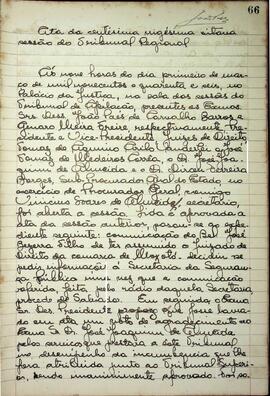 66
Acta da centesima vigesima oitava
sessão do Tribunal Regional
Ás nove horas do dia primeiro de mar-
ço de mil novecentos e quarenta e seis, no
Palacio da Justiça, na sala das sessões do
Tribunal de Apelação, presentes os Exmos.
Srs. Dess. João Paes de Carvalho Barros e
Genaro Freire, respectivamente Pre-
sidente e Vice-Presidente, Juizes de Direito
Tomaz de Aquino e José
Tomaz de Medeiros Corrêa, o Dr. José Joa-
quim de Almeida e o Dr. Dirceu Ferreira
Borges, Sub-Procurador Geral do Estado em
exercicio de Procurador Geral, comigo
Vinicius secretário,
foi aberta a sessão. Lida e aprovada a
ata da sessão anterior, passou-se ao expe-
diente seguinte: comunicação do Bel. José
Bezerra Filho de ter assumido o Juizado de
Direito da comarca de Decidiu-se
pedir informação á Secretaria da Seguran-
ça Publica uma vez que a comunicação
referida feita pelo rádio daquela Secretaria
procede de Salgueiro. Em seguida, o Exmo.
Sr. Des. Presidente propoz que fosse lavra-
do em ata um voto de agradecimento ao
Exmo. Sr. Dr. José Joaquim de Almeida
pelos serviços que prestara a este Tribunal
no desempenho da incumbencia que lhe
fora atribuida junto ao Tribunal Superi-
or, sendo unanimemente aprovado.